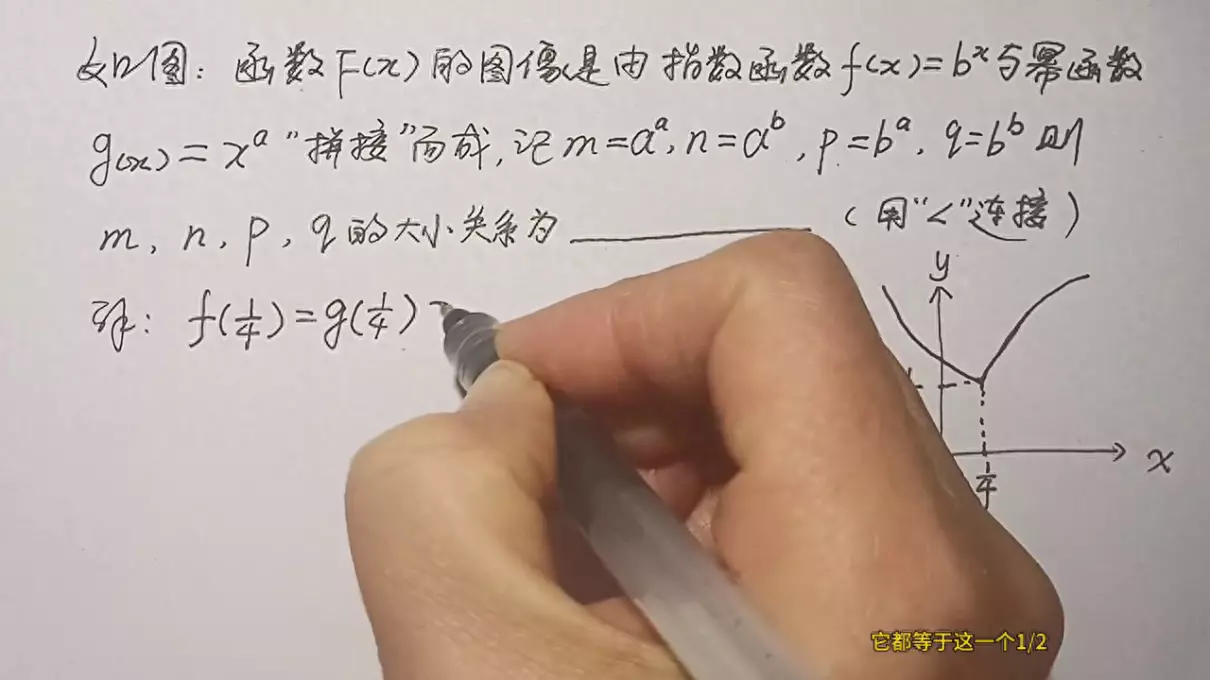 如图：函数F(x)的图像是由指数函数f(x)=bˣ与幂函数
g(x)=xᵃ“拼接”而成，记m=aᵃ，n=aᵇ，p=bᵃ，q=bᵇ则
m，n，p，q的大小关系为__________（用“<”连接）
y
解：f(1/4)=g(1/4)
x
1/4
它都等于这一个1/2